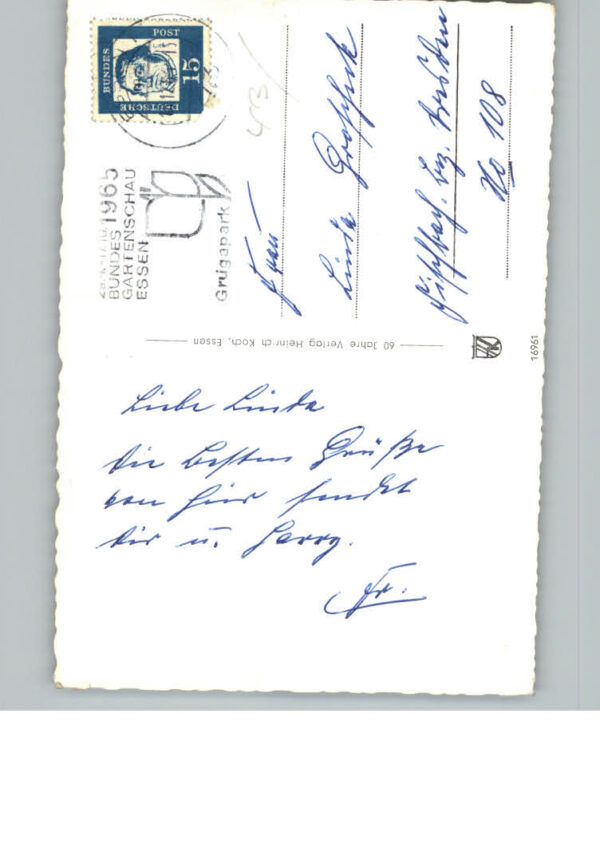 DEUTSCHE
BUNDES
POST
15
1965
BUNDES
GARTENSCHAU
ESSEN
Grugapark
43
Frau
Linda
Fischbach. Bez. Dresden
No 108
60 Jahre Verlag Heinrich Koch, Essen
16961
Liebe Linda
die besten Grüße
von hier sendet
dir u. Harry.
Fr.